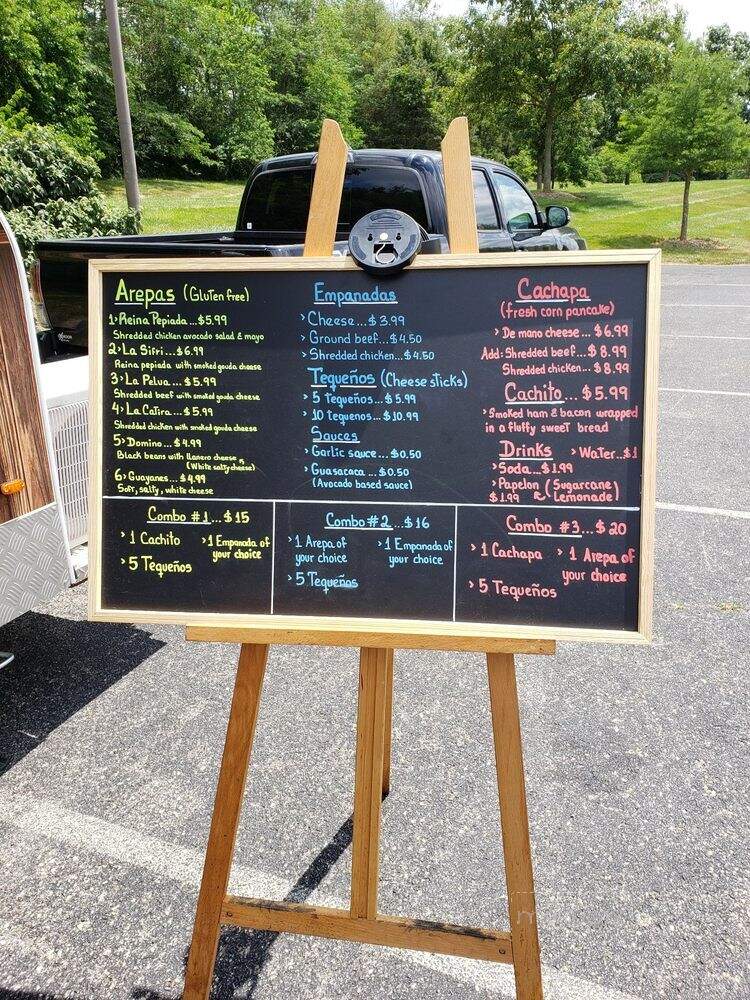 Arepas (Gluten free)
1> Reina Pepiada...$5.99
Shredded chicken avocado salad & mayo
2> La Sifri...$6.99
Reina pepiada with smoked gouda cheese
3> La Pelua...$5.99
Shredded beef with smoked gouda cheese
4> La Catira...$5.99
Shredded chicken with smoked gouda cheese
5> Domino...$4.99
Black beans with llanero cheese
(White salty cheese)
6> Guayanes...$4.99
Soft, salty, white cheese
Empanadas
> Cheese...$3.99
> Ground beef...$4.50
> Shredded chicken...$4.50
Tequeños (Cheese sticks)
> 5 tequeños...$5.99
> 10 tequenos...$10.99
Sauces
> Garlic sauce...$0.50
> Guasacaca...$0.50
(Avocado based sauce)
Cachapa
(fresh corn pancake)
> De mano cheese...$6.99
Add: Shredded beef...$8.99
Shredded chicken...$8.99
Cachito...$5.99
> Smoked ham & bacon wrapped
in a fluffy sweet bread
Drinks > Water..$1
> Soda...$1.99
> Papelon (Sugarcane
$1.99 Lemonade)
Combo #1...$15
> 1 Cachito > 1 Empanada of
your choice
> 5 Tequeños
Combo #2...$16
> 1 Arepa of > 1 Empanada of
your choice your choice
> 5 Tequeños
Combo #3...$20
> 1 Cachapa > 1 Arepa of
your choice
> 5 Tequeños